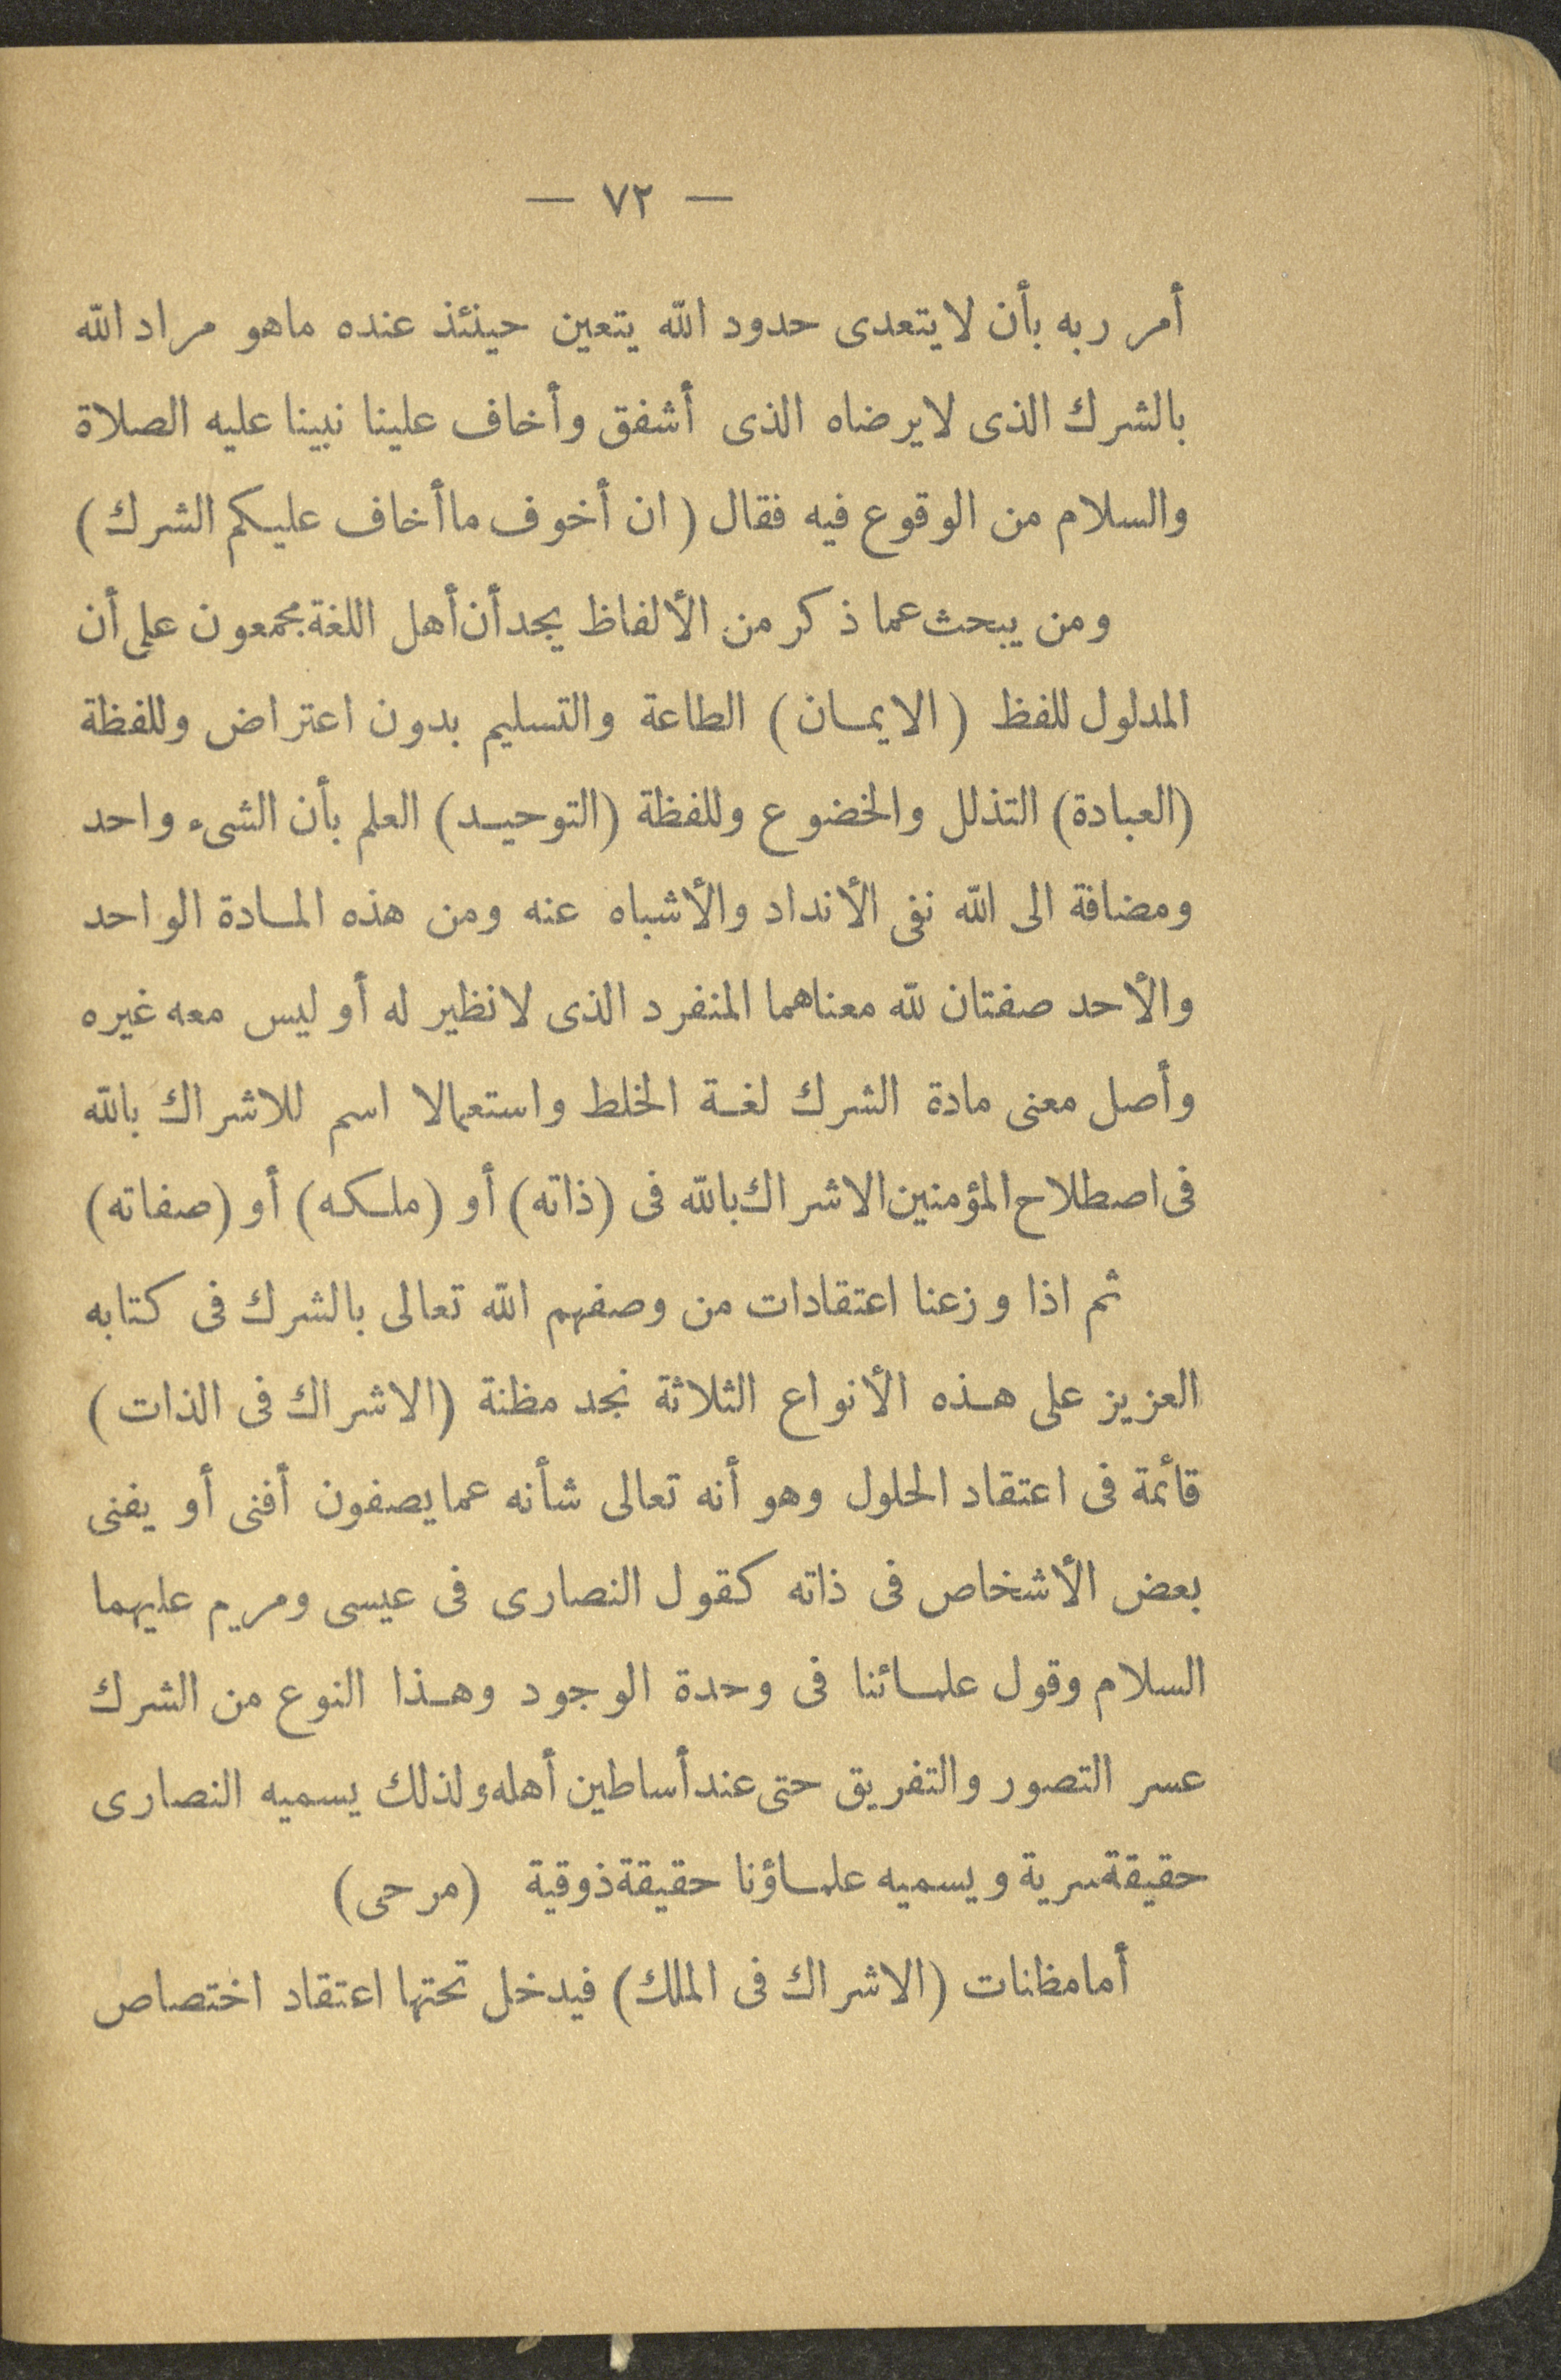 — ٧٢ —
أمر ربه بأن لا يتعدى حدود الله يتعين حينئذ عنده ماهو مراد الله
بالشرك الذى لا يرضاه الذى أشفق وأخاف علينا نبينا عليه الصلاة
والسلام من الوقوع فيه فقال ( ان أخوف ما أخاف عليكم الشرك )
ومن يبحث عما ذكر من الألفاظ يجد أن أهل اللغة مجمعون على أن
المدلول للفظ ( الايمان ) الطاعة والتسليم بدون اعتراض وللفظة
(العبادة) التذلل والخضوع وللفظة (التوحيد) العلم بأن الشىء واحد
ومضافة الى الله نفى الأنداد والأشباه عنه ومن هذه المادة الواحد
والأحد صفتان لله معناهما المنفرد الذى لا نظير له أو ليس معه غيره
وأصل معنى مادة الشرك لغة الخلط واستعمالا اسم للاشراك بالله
فى اصطلاح المؤمنين الاشراك بالله فى (ذاته) أو (ملكه) أو (صفاته)
ثم اذا وزعنا اعتقادات من وصفهم الله تعالى بالشرك فى كتابه
العزيز على هذه الأنواع الثلاثة نجد مظنة (الاشراك فى الذات )
قائمة فى اعتقاد الحلول وهو أنه تعالى شأنه عما يصفون أفنى أو يفنى
بعض الأشخاص فى ذاته كقول النصارى فى عيسى ومريم عليهما
السلام وقول علمائنا فى وحدة الوجود وهذا النوع من الشرك
عسر التصور والتفريق حتى عند أساطين أهله ولذلك يسميه النصارى
حقيقة سرية ويسميه علماؤنا حقيقة ذوقية (مرحى)
أما مظنات (الاشراك فى الملك) فيدخل تحتها اعتقاد اختصاص